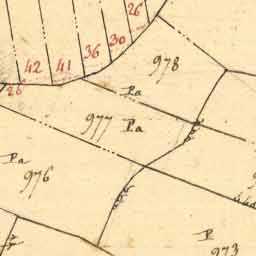 26
30
36
41
42
28
978
Pa
977 Pa
Pa
976
P
973